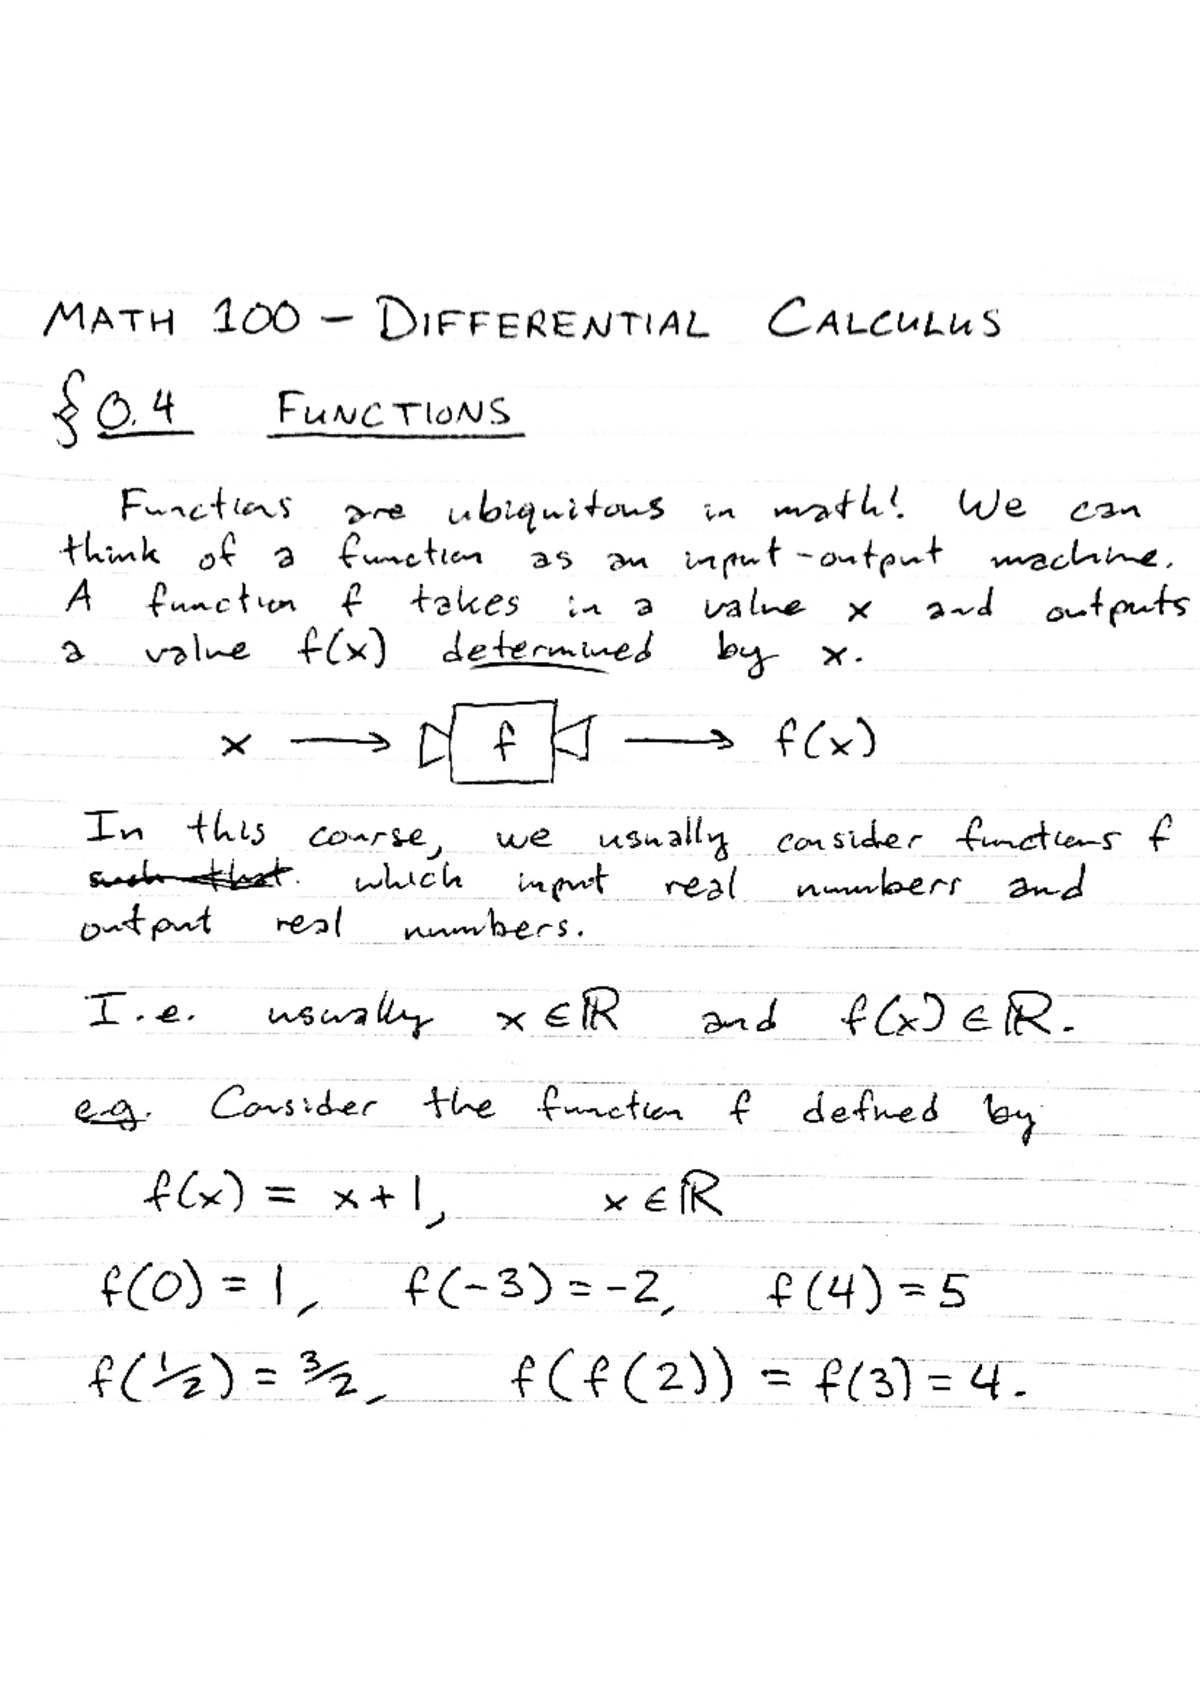 MATH 100 – DIFFERENTIAL CALCULUS
§ 0.4 FUNCTIONS
Functions are ubiquitous in math! We can
think of a function as an input-output machine.
A function f takes in a value x and outputs
a value f(x) determined by x.
x → f → f(x)
In this course, we usually consider functions f
such that which input real numbers and
output real numbers.
I.e. usually x ∈ ℝ and f(x) ∈ ℝ.
e.g. Consider the function f defined by
f(x) = x + 1, x ∈ ℝ
f(0) = 1, f(-3) = -2, f(4) = 5
f(1/2) = 3/2, f(f(2)) = f(3) = 4.